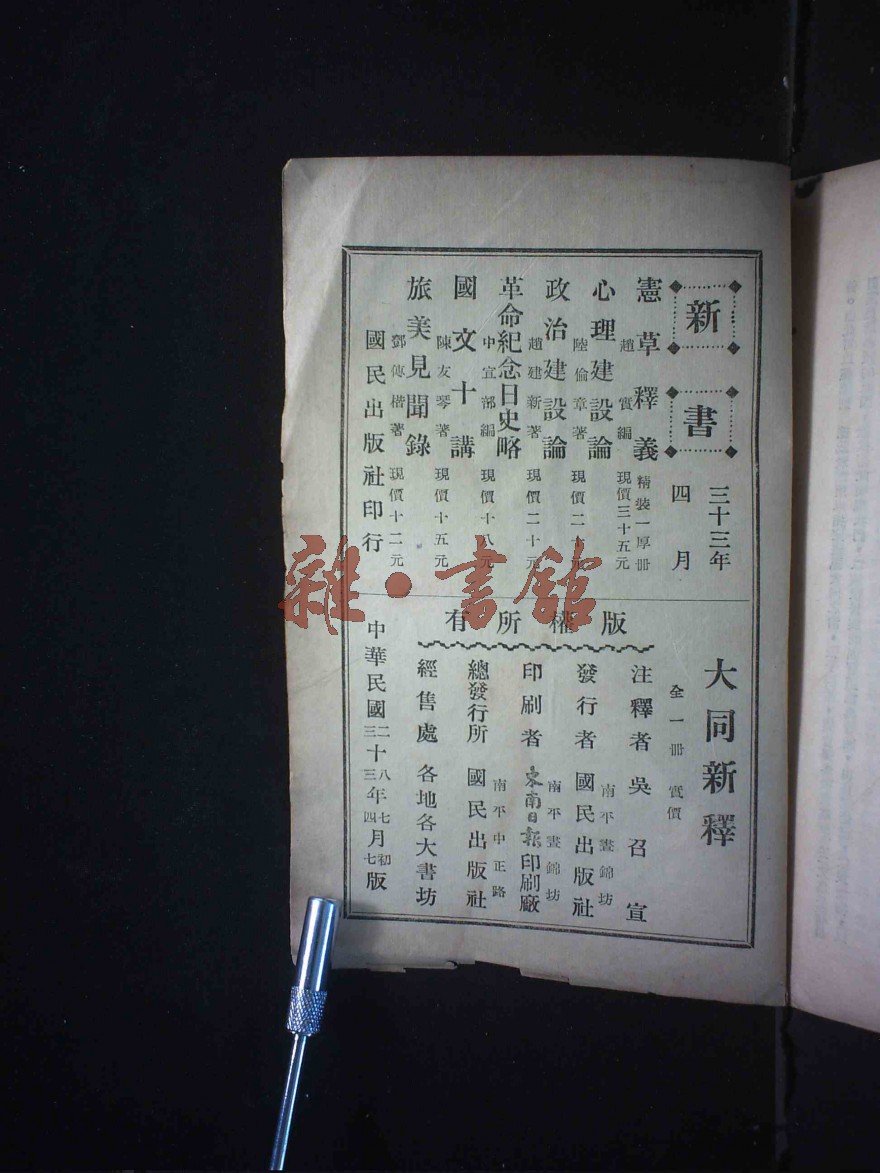 新書
三十三年
四月
憲草釋義
趙實編
精裝一厚冊
現價三十五元
心理建設論
陸倫章著
現價二十元
政治建設論
趙建新著
現價二十元
革命紀念日史略
中宣部編
現價十八元
國文十講
陳友琴著
現價十五元
旅美見聞錄
鄧傳楷著
現價十二元
國民出版社印行
大同新釋
全一冊 實價
版權所有
注釋者 吳召宣
南平晝錦坊
發行者 國民出版社
南平晝錦坊
印刷者 東南日報印刷廠
南平中正路
總發行所 國民出版社
經售處 各地各大書坊
中華民國二十八年七月初版
三三四七
雜·書館